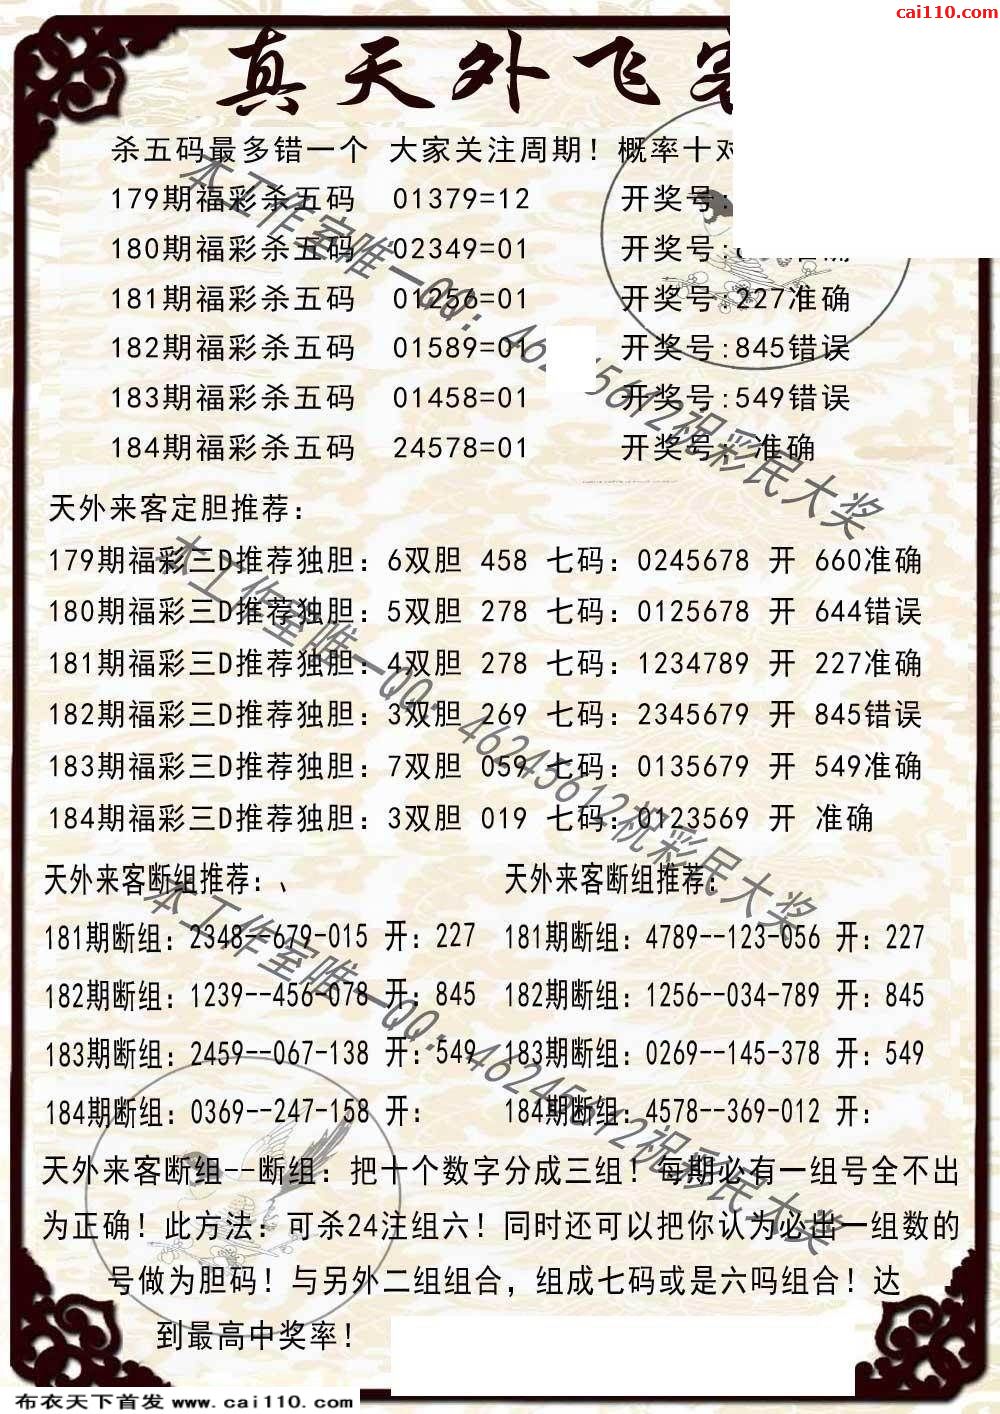 cai110.com
真天外飞客
杀五码最多错一个 大家关注周期！概率十对
179期福彩杀五码 01379=12 开奖号:
180期福彩杀五码 02349=01 开奖号: 准确
181期福彩杀五码 01256=01 开奖号:227准确
182期福彩杀五码 01589=01 开奖号:845错误
183期福彩杀五码 01458=01 开奖号:549错误
184期福彩杀五码 24578=01 开奖号: 准确
天外来客定胆推荐：
179期福彩三D推荐独胆：6双胆 458 七码：0245678 开 660准确
180期福彩三D推荐独胆：5双胆 278 七码：0125678 开 644错误
181期福彩三D推荐独胆：4双胆 278 七码：1234789 开 227准确
182期福彩三D推荐独胆：3双胆 269 七码：2345679 开 845错误
183期福彩三D推荐独胆：7双胆 059 七码：0135679 开 549准确
184期福彩三D推荐独胆：3双胆 019 七码：0123569 开 准确
天外来客断组推荐：、 天外来客断组推荐：
181期断组：2348--679-015 开：227 181期断组：4789--123-056 开：227
182期断组：1239--456-078 开：845 182期断组：1256--034-789 开：845
183期断组：2459--067-138 开：549 183期断组：0269--145-378 开：549
184期断组：0369--247-158 开： 184期断组：4578--369-012 开：
天外来客断组--断组：把十个数字分成三组！每期必有一组号全不出
为正确！此方法：可杀24注组六！同时还可以把你认为必出一组数的
号做为胆码！与另外二组组合，组成七码或是六吗组合！达
到最高中奖率！
本工作室唯一QQ：46245612祝彩民大奖
本工作室唯一QQ：46245612祝彩民大奖
本工作室唯一QQ：46245612祝彩民大奖
布衣天下首发 www.cai110.com